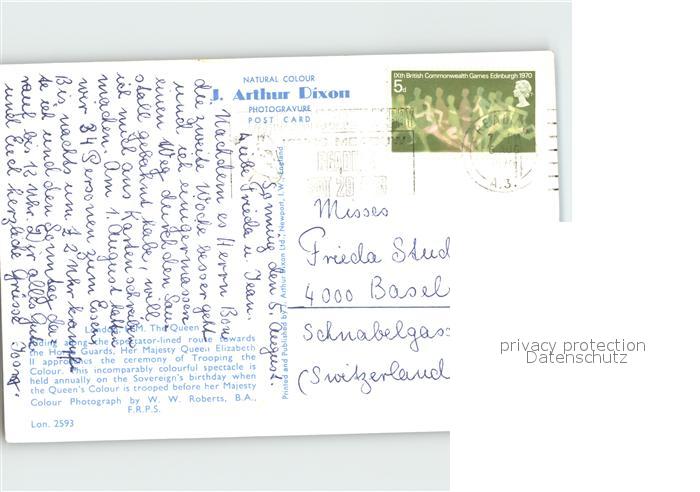 NATURAL COLOUR
J. Arthur Dixon
PHOTOGRAVURE
POST CARD
IXth British Commonwealth Games Edinburgh 1970
5d
A.3.
Printed and Published by J. Arthur Dixon Ltd., Newport, I.W., England
Sonntag den 5. August.
Liebe Frieda u. Jean.
Nachdem es Herrn Bon
die zweite Woche besser geht
und ich einigermassen
einen Weg durch den Sau
stall gebahnt habe, will
ich mit aus Karten schreiben
machen. Am 1. August hatten
wir 34 Personen zum Essen
Bis nachts um 1/2 2 Uhr krampf
te ich und den Sonntag da
rauf bis 12 Uhr. Dir alles Gute
und Euch herzliche Grüsse
Misses
Frieda Stud
4000 Basel
Schnabelgas
(Switzerland
London. H.M. The Queen
Riding along the spectator-lined route towards
the Horse Guards, Her Majesty Queen Elizabeth
II approaches the ceremony of Trooping the
Colour. This incomparably colourful spectacle is
held annually on the Sovereign's birthday when
the Queen's Colour is trooped before her Majesty
Colour Photograph by W. W. Roberts, B.A.,
F.R.P.S.
Lon. 2593
privacy protection
Datenschutz